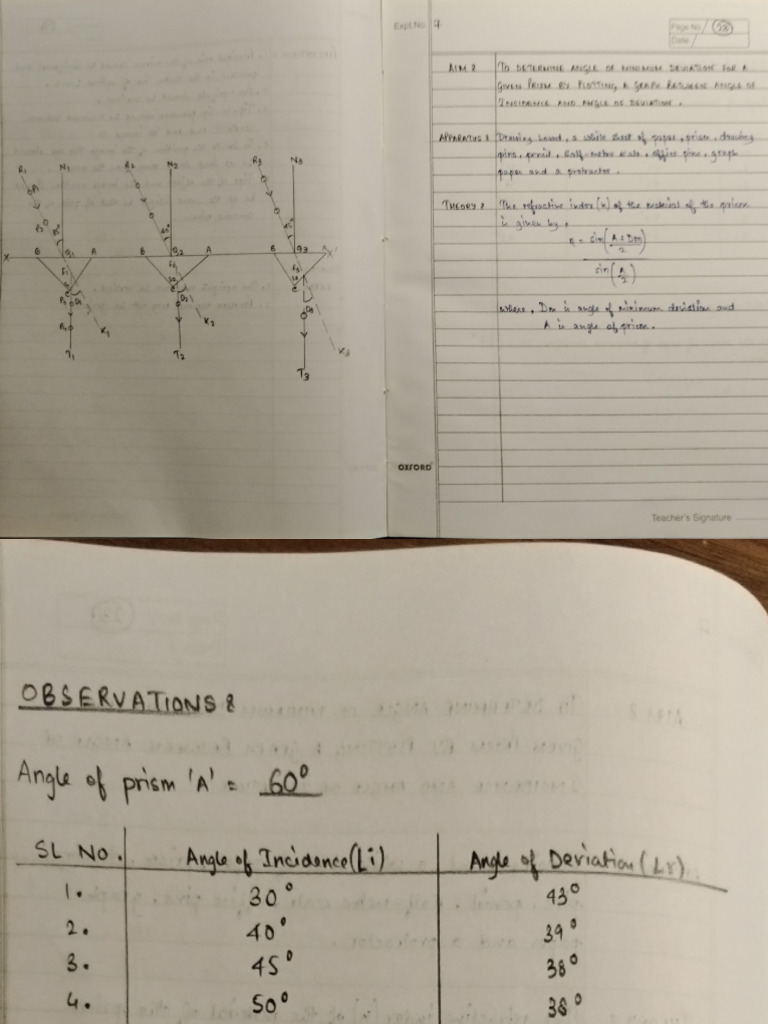 Expt.No. 7
Page No. 33
Date
AIM :
TO DETERMINE ANGLE OF MINIMUM DEVIATION FOR A
GIVEN PRISM BY PLOTTING, A GRAPH BETWEEN ANGLE OF
INCIDENCE AND ANGLE OF DEVIATION.
APPARATUS :
Drawing board, a white sheet of paper, prism, drawing
pins, pencil, half-metre scale, office pins, graph
paper and a protractor.
THEORY :
The refractive index (n) of the material of the prism
is given by,
n = sin(A + Dm / 2)
sin(A / 2)
where, Dm is angle of minimum deviation and
A is angle of prism.
OXFORD
Teacher's Signature
R1 N1 R2 N2 R3 N3
X B Q1 A B Q2 A B Q3 A X'
K1 K2 K3
T1 T2 T3
OBSERVATIONS :
Angle of prism 'A' = 60°
SL No. Angle of Incidence (Li) Angle of Deviation (Lr)
1. 30° 43°
2. 40° 39°
3. 45° 38°
4. 50° 38°